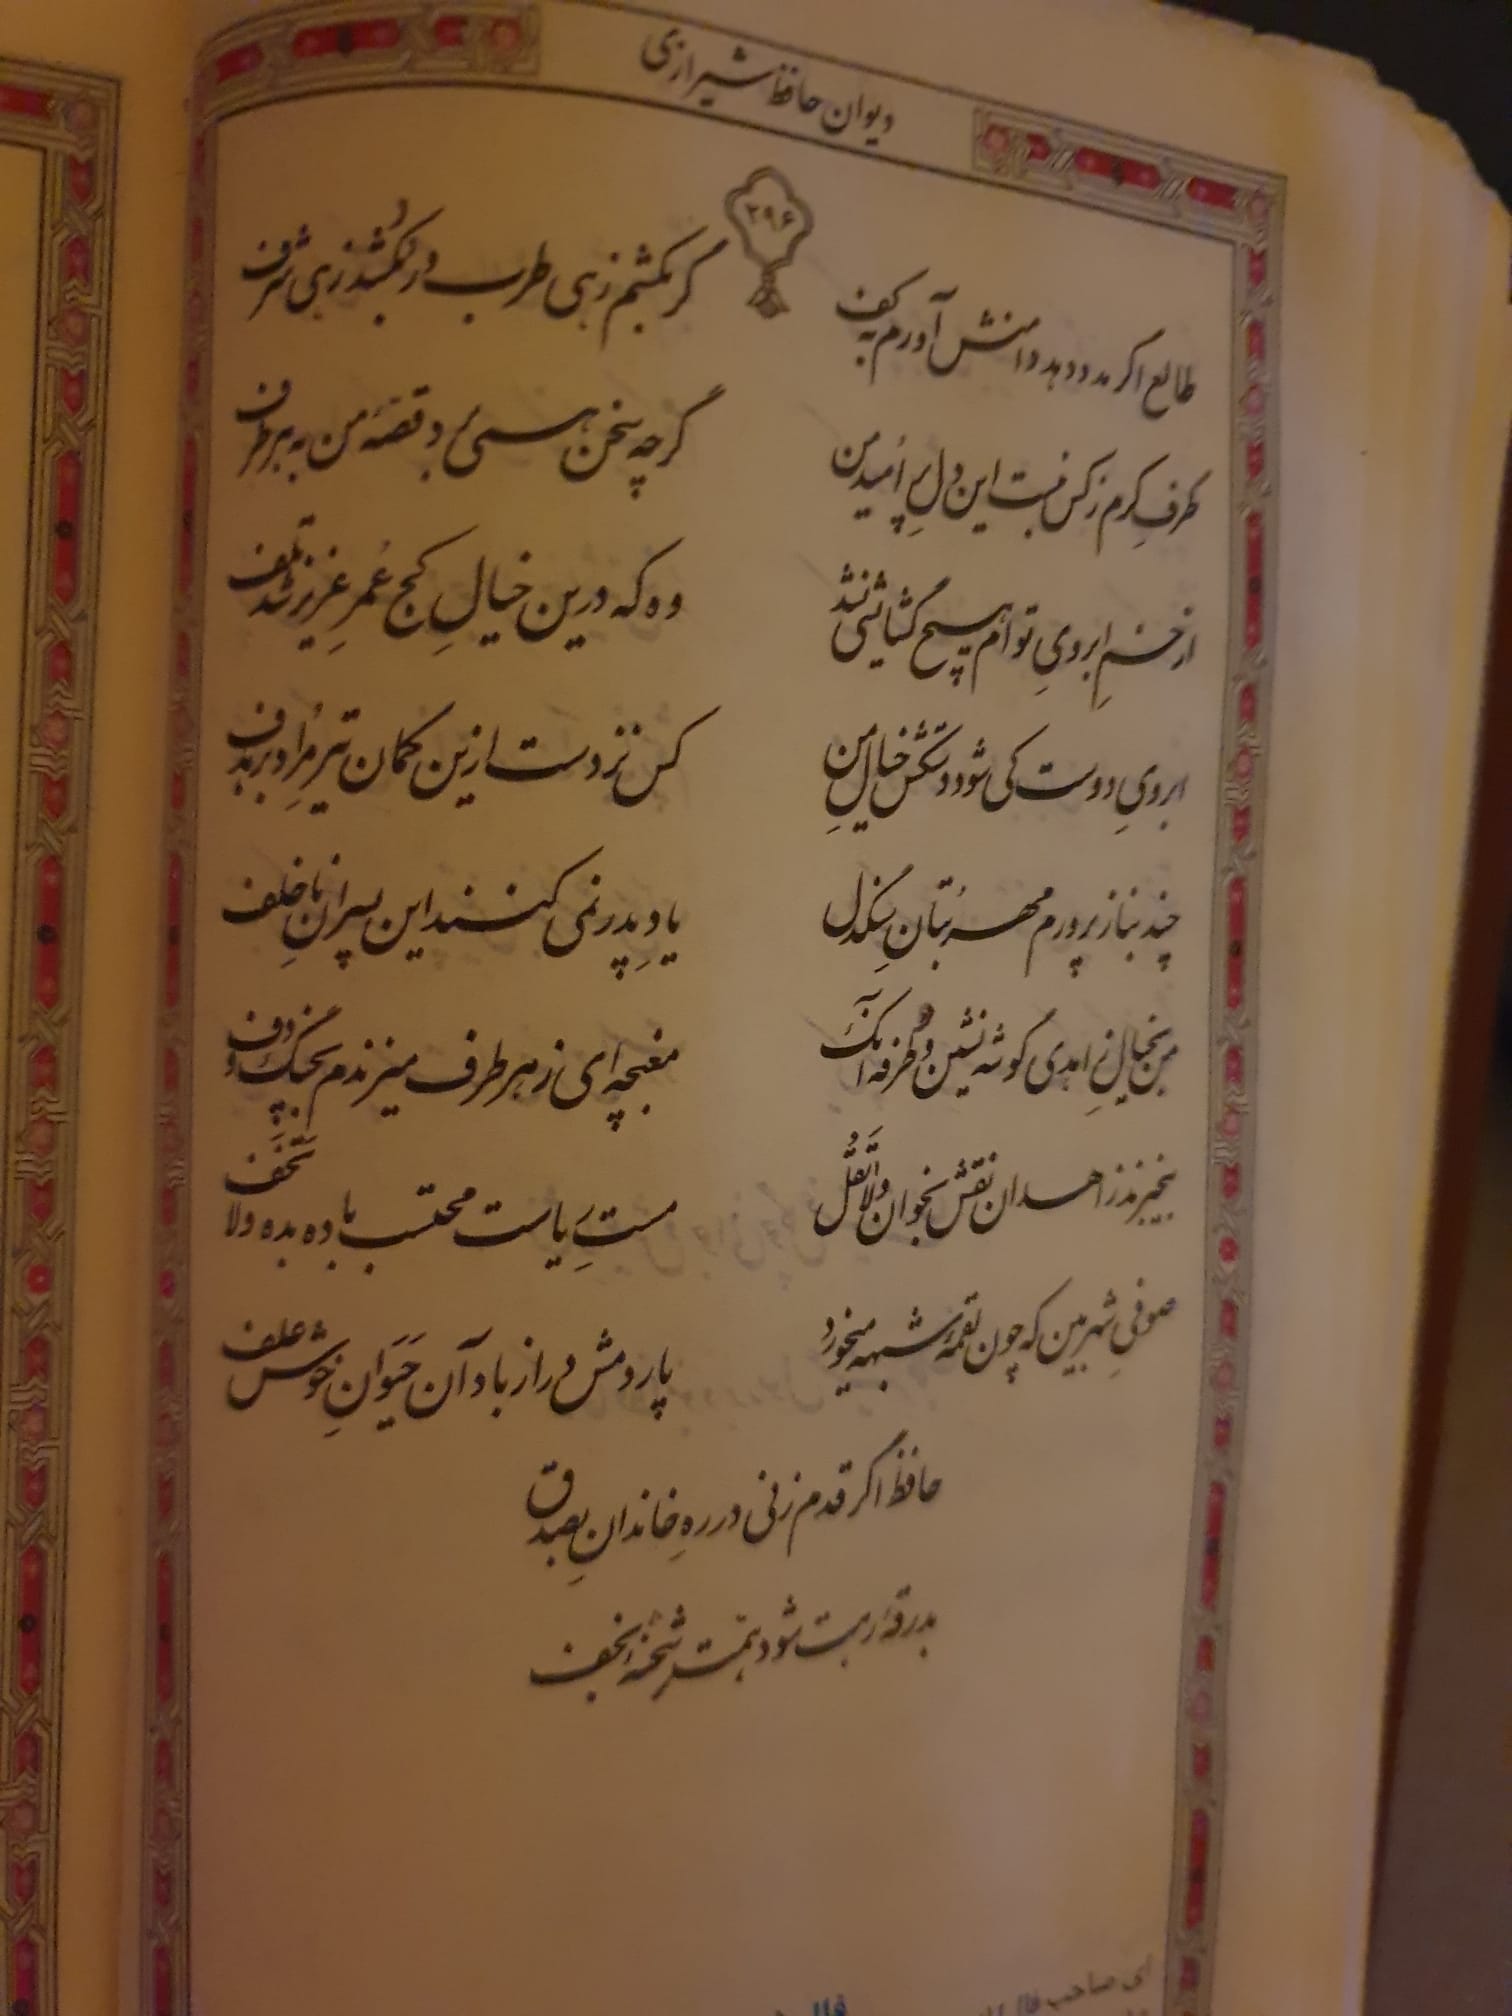 دیوان حافظ شیرازی
۲۹۶
طالع اگر مدد دهد دامنش آورم به کف
گر بکشم زهی طرب ور بکُشد زهی شرف
طرفِ کرم ز کس نبست این دلِ پر اُمید من
گرچه سخن همی برد قصهٔ من به هر طرف
از خمِ ابرویِ توام هیچ گشایشی نشد
وه که درین خیالِ کج عُمرِ عزیز شد تلف
ابرویِ دوست کی شود دستکش خیالِ من
کس نزدست ازین کمان تیرِ مُراد بر هدف
چند بناز پرورم مهر بُتانِ سنگدل
یادِ پدر نمی کنند این پسرانِ ناخلف
من بخیالِ زاهدی گوشه نشین و طُرفه آنک
مغبچه ای ز هر طرف میزندم بچنگ و دف
بیخبرند زاهدان نقش بخوان وَلا تَقُل
مستِ ریاست محتسب باده بده ولا تَخَف
صوفیِ شهر بین که چون لقمهٔ شبهه میخورد
پاردمش دراز باد آن حَیَوانِ خوش علف
حافظ اگر قدم زنی در رهِ خاندان بصدق
بدرقهٔ رهت شود همّتِ شحنهٔ نجف
ای صاحب فال